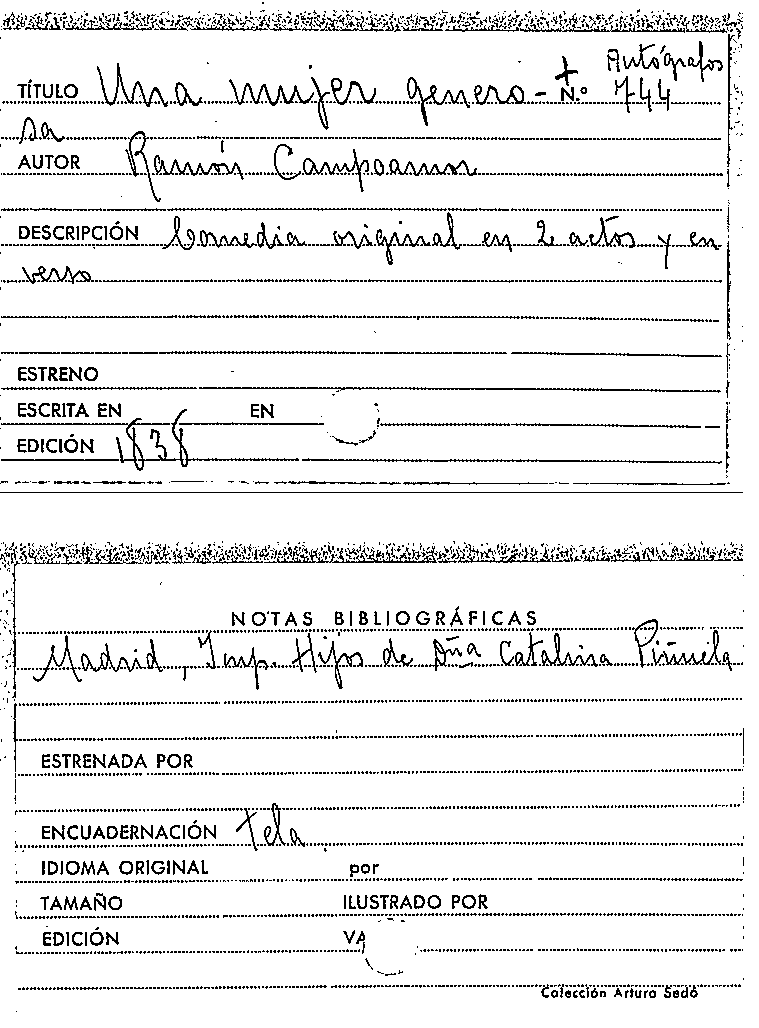 Autógrafos
TÍTULO Una mujer genero- + N.º 744
sa
AUTOR Ramón Campoamor
DESCRIPCIÓN Comedia original en 2 actos y en
verso
ESTRENO
ESCRITA EN EN
EDICIÓN 1838
NOTAS BIBLIOGRÁFICAS
Madrid, Imp. Hijos de Dña Catalina Piñuela
ESTRENADA POR
ENCUADERNACIÓN tela
IDIOMA ORIGINAL por
TAMAÑO ILUSTRADO POR
EDICIÓN VA
Colección Arturo Sedó